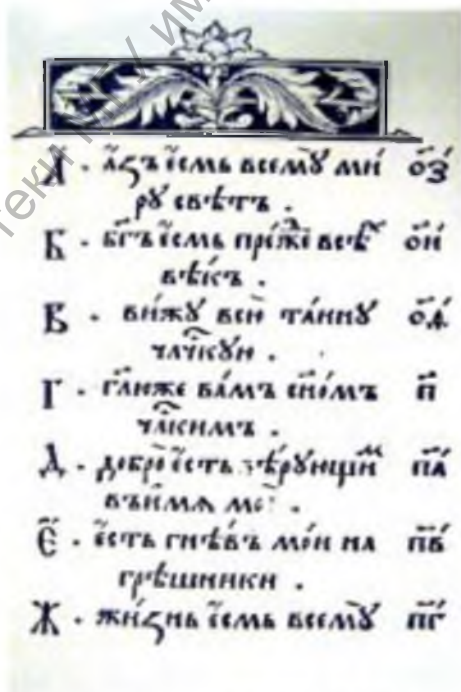 А҆ · а҆зъ є҆смь всемꙋ ми́ ѻ҃з
рꙋ свѣтъ .
Б · бг҃ъ є҆смь пре́жⷣе всѣⷯ ѻ҃и
вѣкъ .
В · ви́жꙋ всю̀ та́инꙋ ѻ҃ѳ
члч҃кꙋю .
Г · гл҃юже ва́мъ сн҃омъ п҃
члч҃кимъ .
Д · добро̀ є҆сть вѣ́рꙋющиⷨ п҃а
въ и҆́мѧ
Є҆ · є҆сть гнѣ́въ мо́и на п҃в
грѣ́шники .
Ж · жи́знь є҆смь всемꙋ̀ п҃г